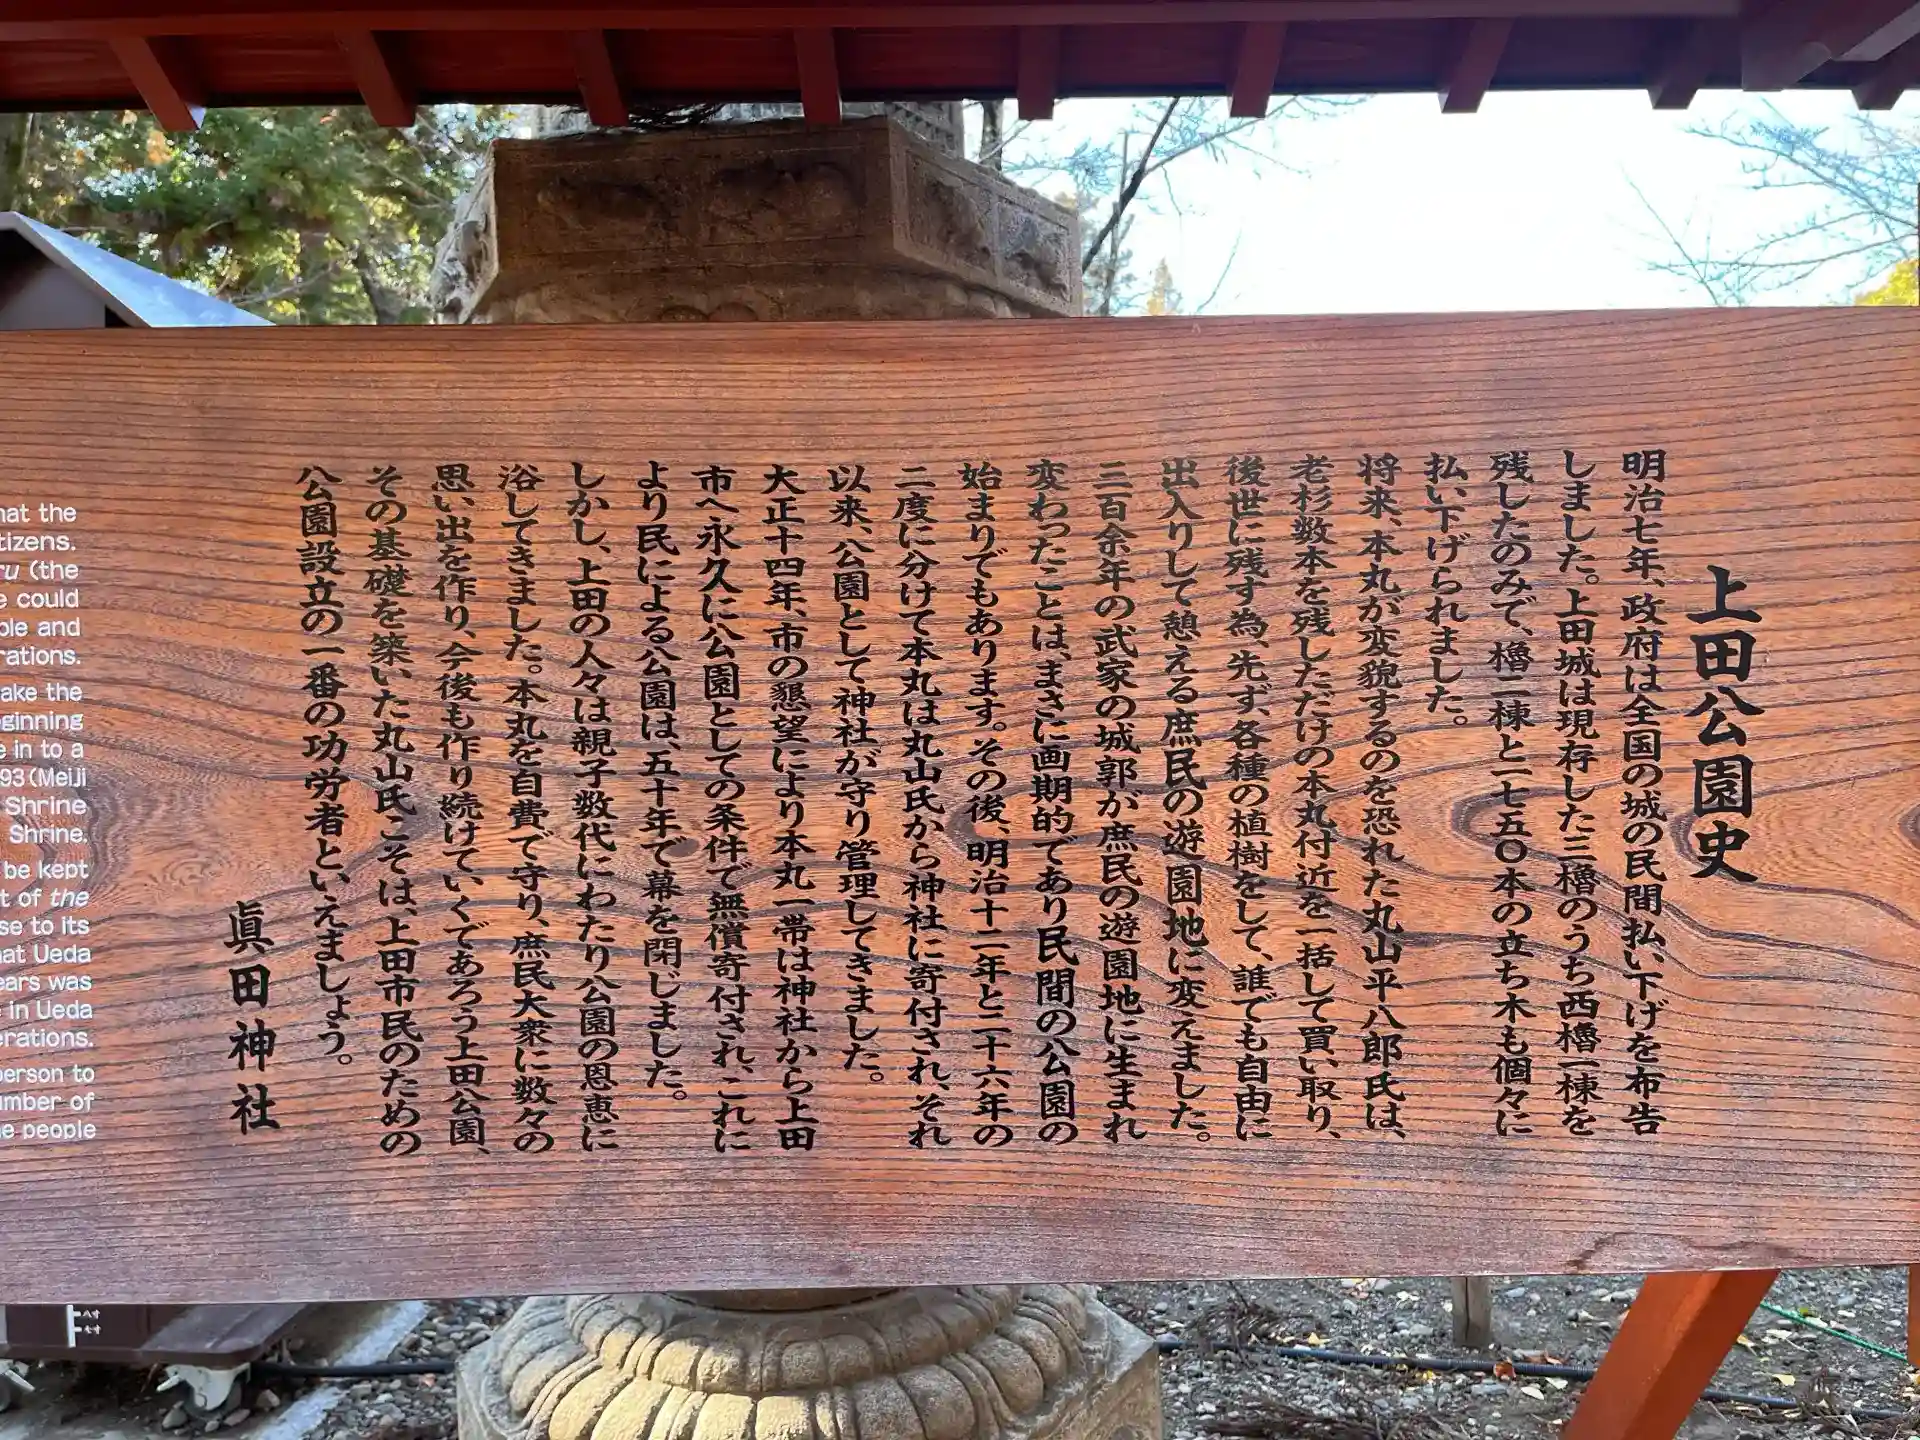 上田公園史
明治七年、政府は全国の城の民間払い下げを布告
しました。上田城は現存した三櫓のうち西櫓一棟を
残したのみで、櫓二棟と一七五〇本の立ち木も個々に
払い下げられました。
将来、本丸が変貌するのを恐れた丸山平八郎氏は、
老杉数本を残しただけの本丸付近を一括して買い取り、
後世に残す為、先ず、各種の植樹をして、誰でも自由に
出入りして憩える庶民の遊園地に変えました。
三百余年の武家の城郭が庶民の遊園地に生まれ
変わったことは、まさに画期的であり民間の公園の
始まりでもあります。その後、明治十二年と二十六年の
二度に分けて本丸は丸山氏から神社に寄付され、それ
以来、公園として神社が守り管理してきました。
大正十四年、市の懇望により本丸一帯は神社から上田
市へ永久に公園としての条件で無償寄付され、これに
より民による公園は、五十年で幕を閉じました。
しかし、上田の人々は親子数代にわたり公園の恩恵に
浴してきました。本丸を自費で守り、庶民大衆に数々の
思い出を作り、今後も作り続けていくであろう上田公園、
その基礎を築いた丸山氏こそは、上田市民のための
公園設立の一番の功労者といえましょう。
眞田神社
hat the
tizens.
ru (the
e could
ple and
rations.
ake the
eginning
e in to a
93 (Meiji
Shrine
Shrine.
be kept
t of the
se to its
hat Ueda
ears was
e in Ueda
erations.
person to
umber of
he people
八寸
七寸